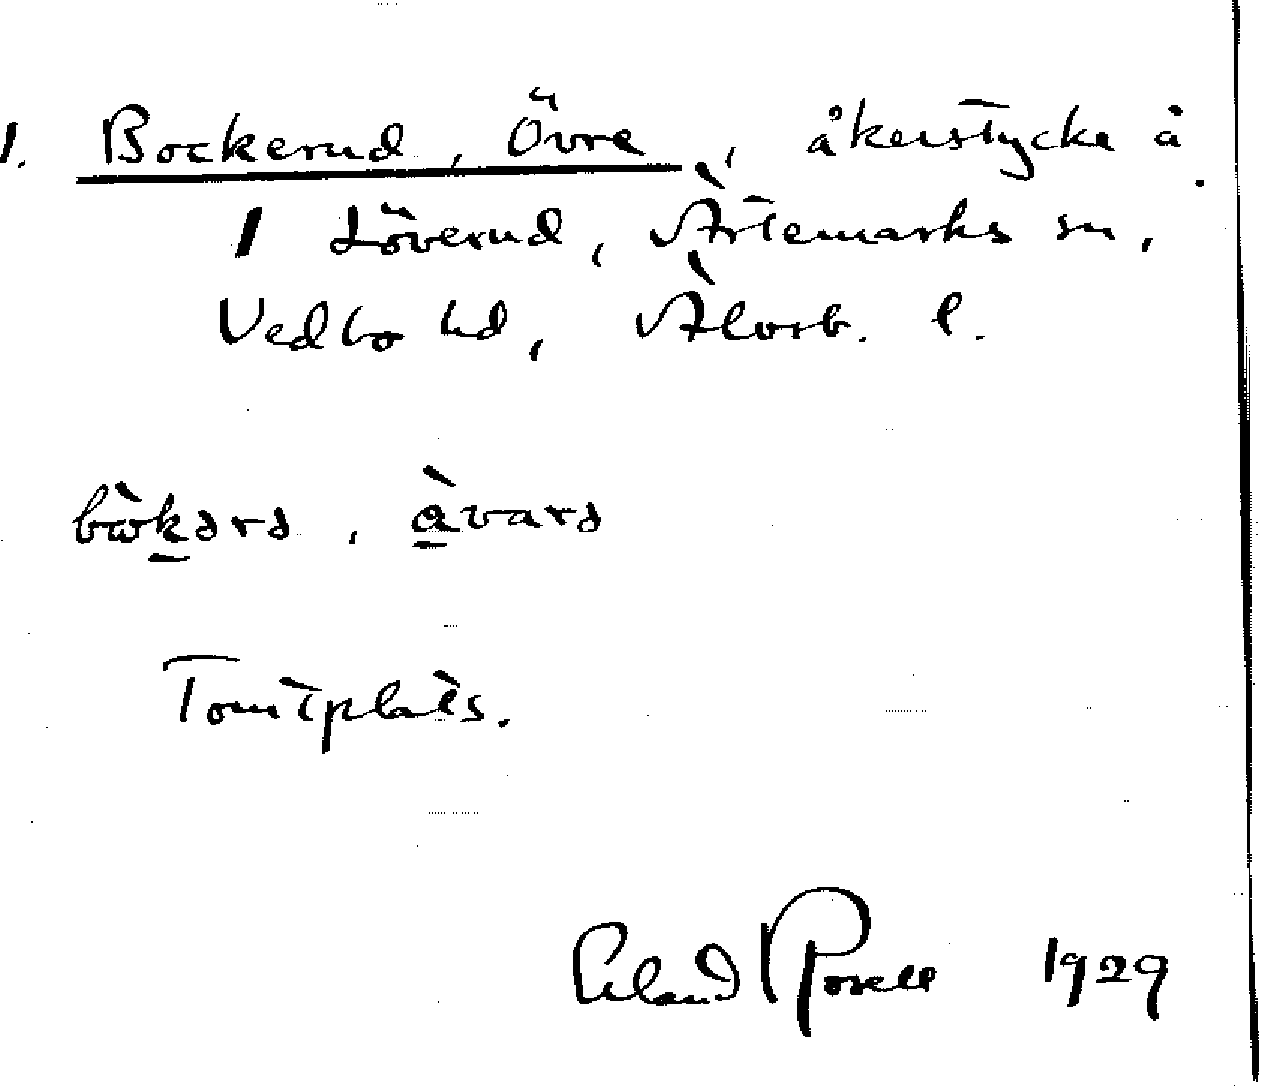 1. Bockerud, Övre, åkerstycke å
1 Löverud, Ärtemarks sn,
Vedbo hd, Älvsb. l.
bὼkərə, àvarə
Tomtplats.
Erland Rosell 1929